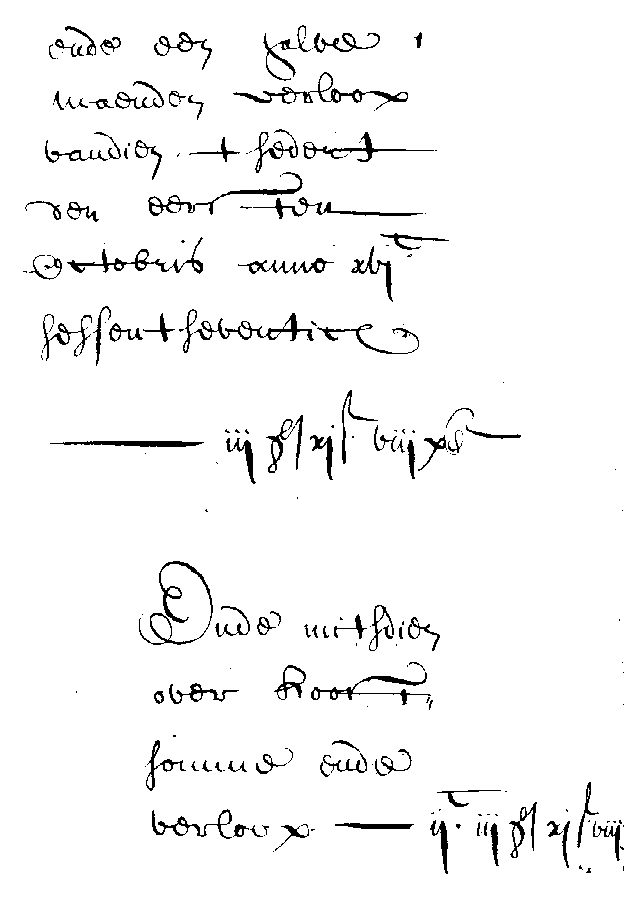 ende een halve
maenden verloop
vandien t sedert
den eersten
octobris anno xvjc
sessentseventich
iij gl xj s viij p
Ende mitsdien
over hooft
somme ende
verloop ijc iij gl xj s viij